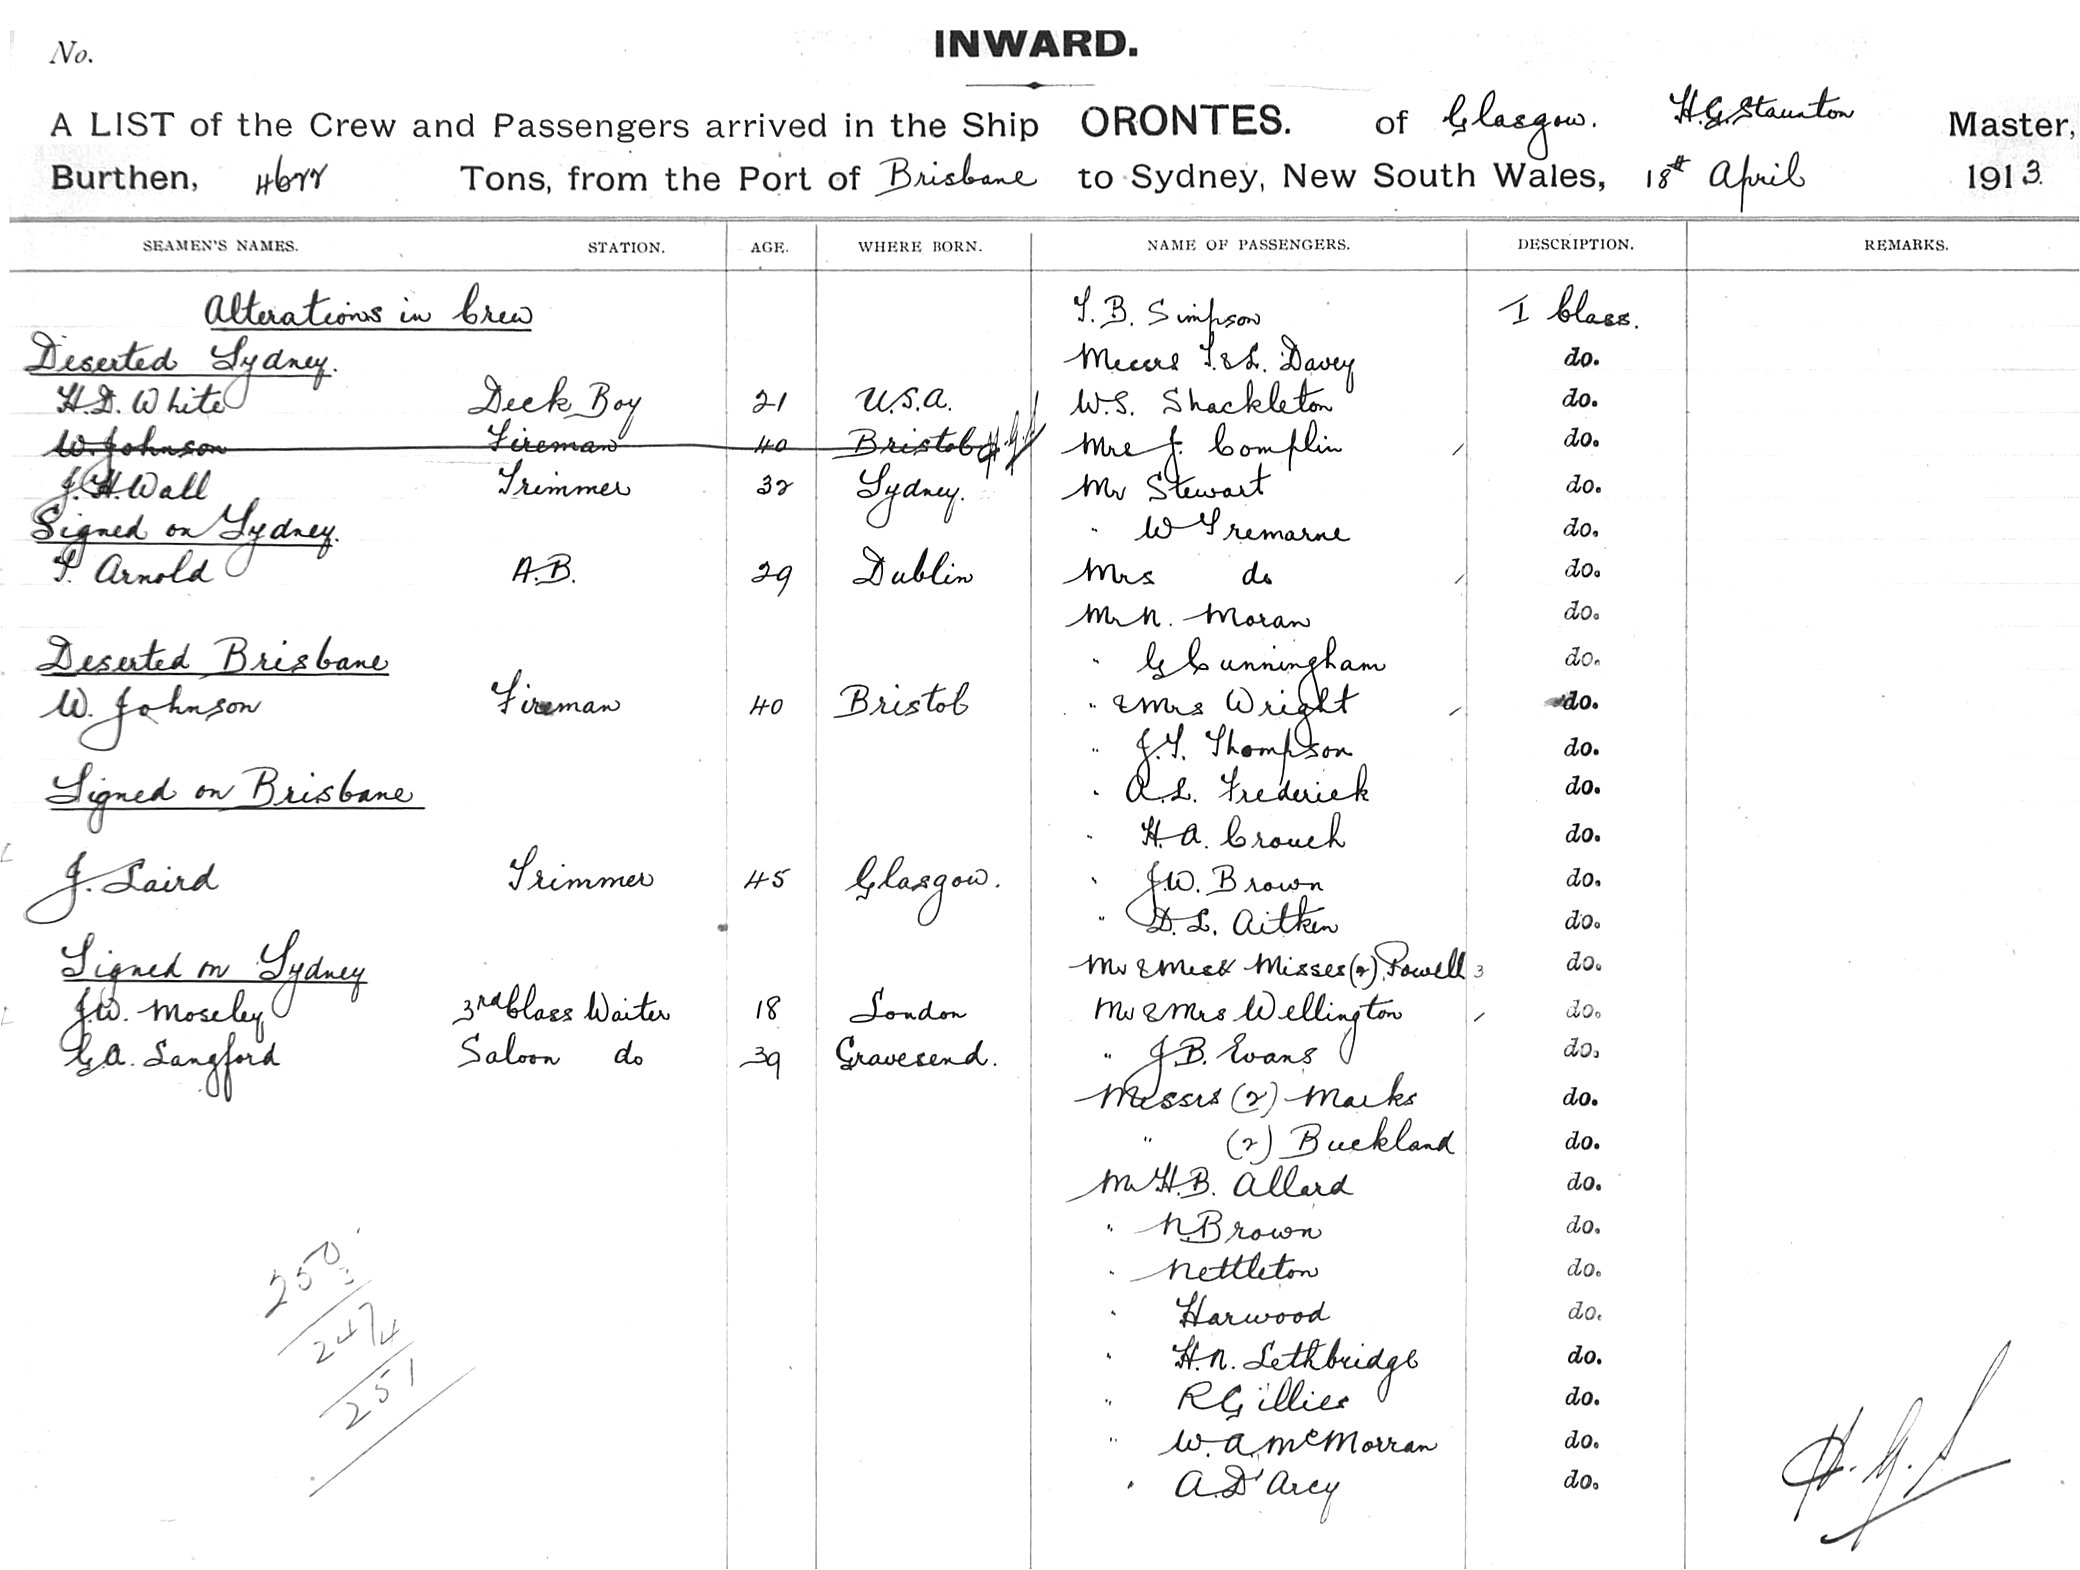 No.
INWARD.
A LIST of the Crew and Passengers arrived in the Ship ORONTES. of Glasgow. H.G. Staunton Master,
Burthen, 4622 Tons, from the Port of Brisbane to Sydney, New South Wales, 18th April 1913.
SEAMEN'S NAMES. STATION. AGE. WHERE BORN. NAME OF PASSENGERS. DESCRIPTION. REMARKS.
Alterations in Crew T. B. Simpson I Class.
Deserted Sydney. Messrs T. & L. Davey do.
H.D. White Deck Boy 21 U.S.A. W.S. Shackleton do.
W. Johnson Fireman 40 Bristol H.G.S Mrs J. Complin do.
J.H. Wall Trimmer 32 Sydney. Mr Stewart do.
Signed on Sydney. " W Tremarne do.
T. Arnold A.B. 29 Dublin Mrs do do.
Mr N. Moran do.
Deserted Brisbane " G Cunningham do.
W. Johnson Fireman 40 Bristol " & Mrs Wright do.
" J.T. Thompson do.
Signed on Brisbane " A.L. Frederick do.
" H.A. Crouch do.
J. Laird Trimmer 45 Glasgow. " J.W. Brown do.
" D.L. Aitken do.
Signed on Sydney Mr & Mrs & Misses (2) Powell 3 do.
J.W. Moseley 3rd Class Waiter 18 London Mr & Mrs Wellington do.
G.A. Langford Saloon do 39 Gravesend. " J.B. Evans do.
Messrs (2) Marks do.
" (2) Buckland do.
Mr H.B. Allard do.
" N. Brown do.
" Nettleton do.
" Harwood do.
" H.N. Lethbridge do.
" R Gillies do.
" W.A. McMorran do.
" A. D'Arcy do.
250
3
247
4
251
H.G.S